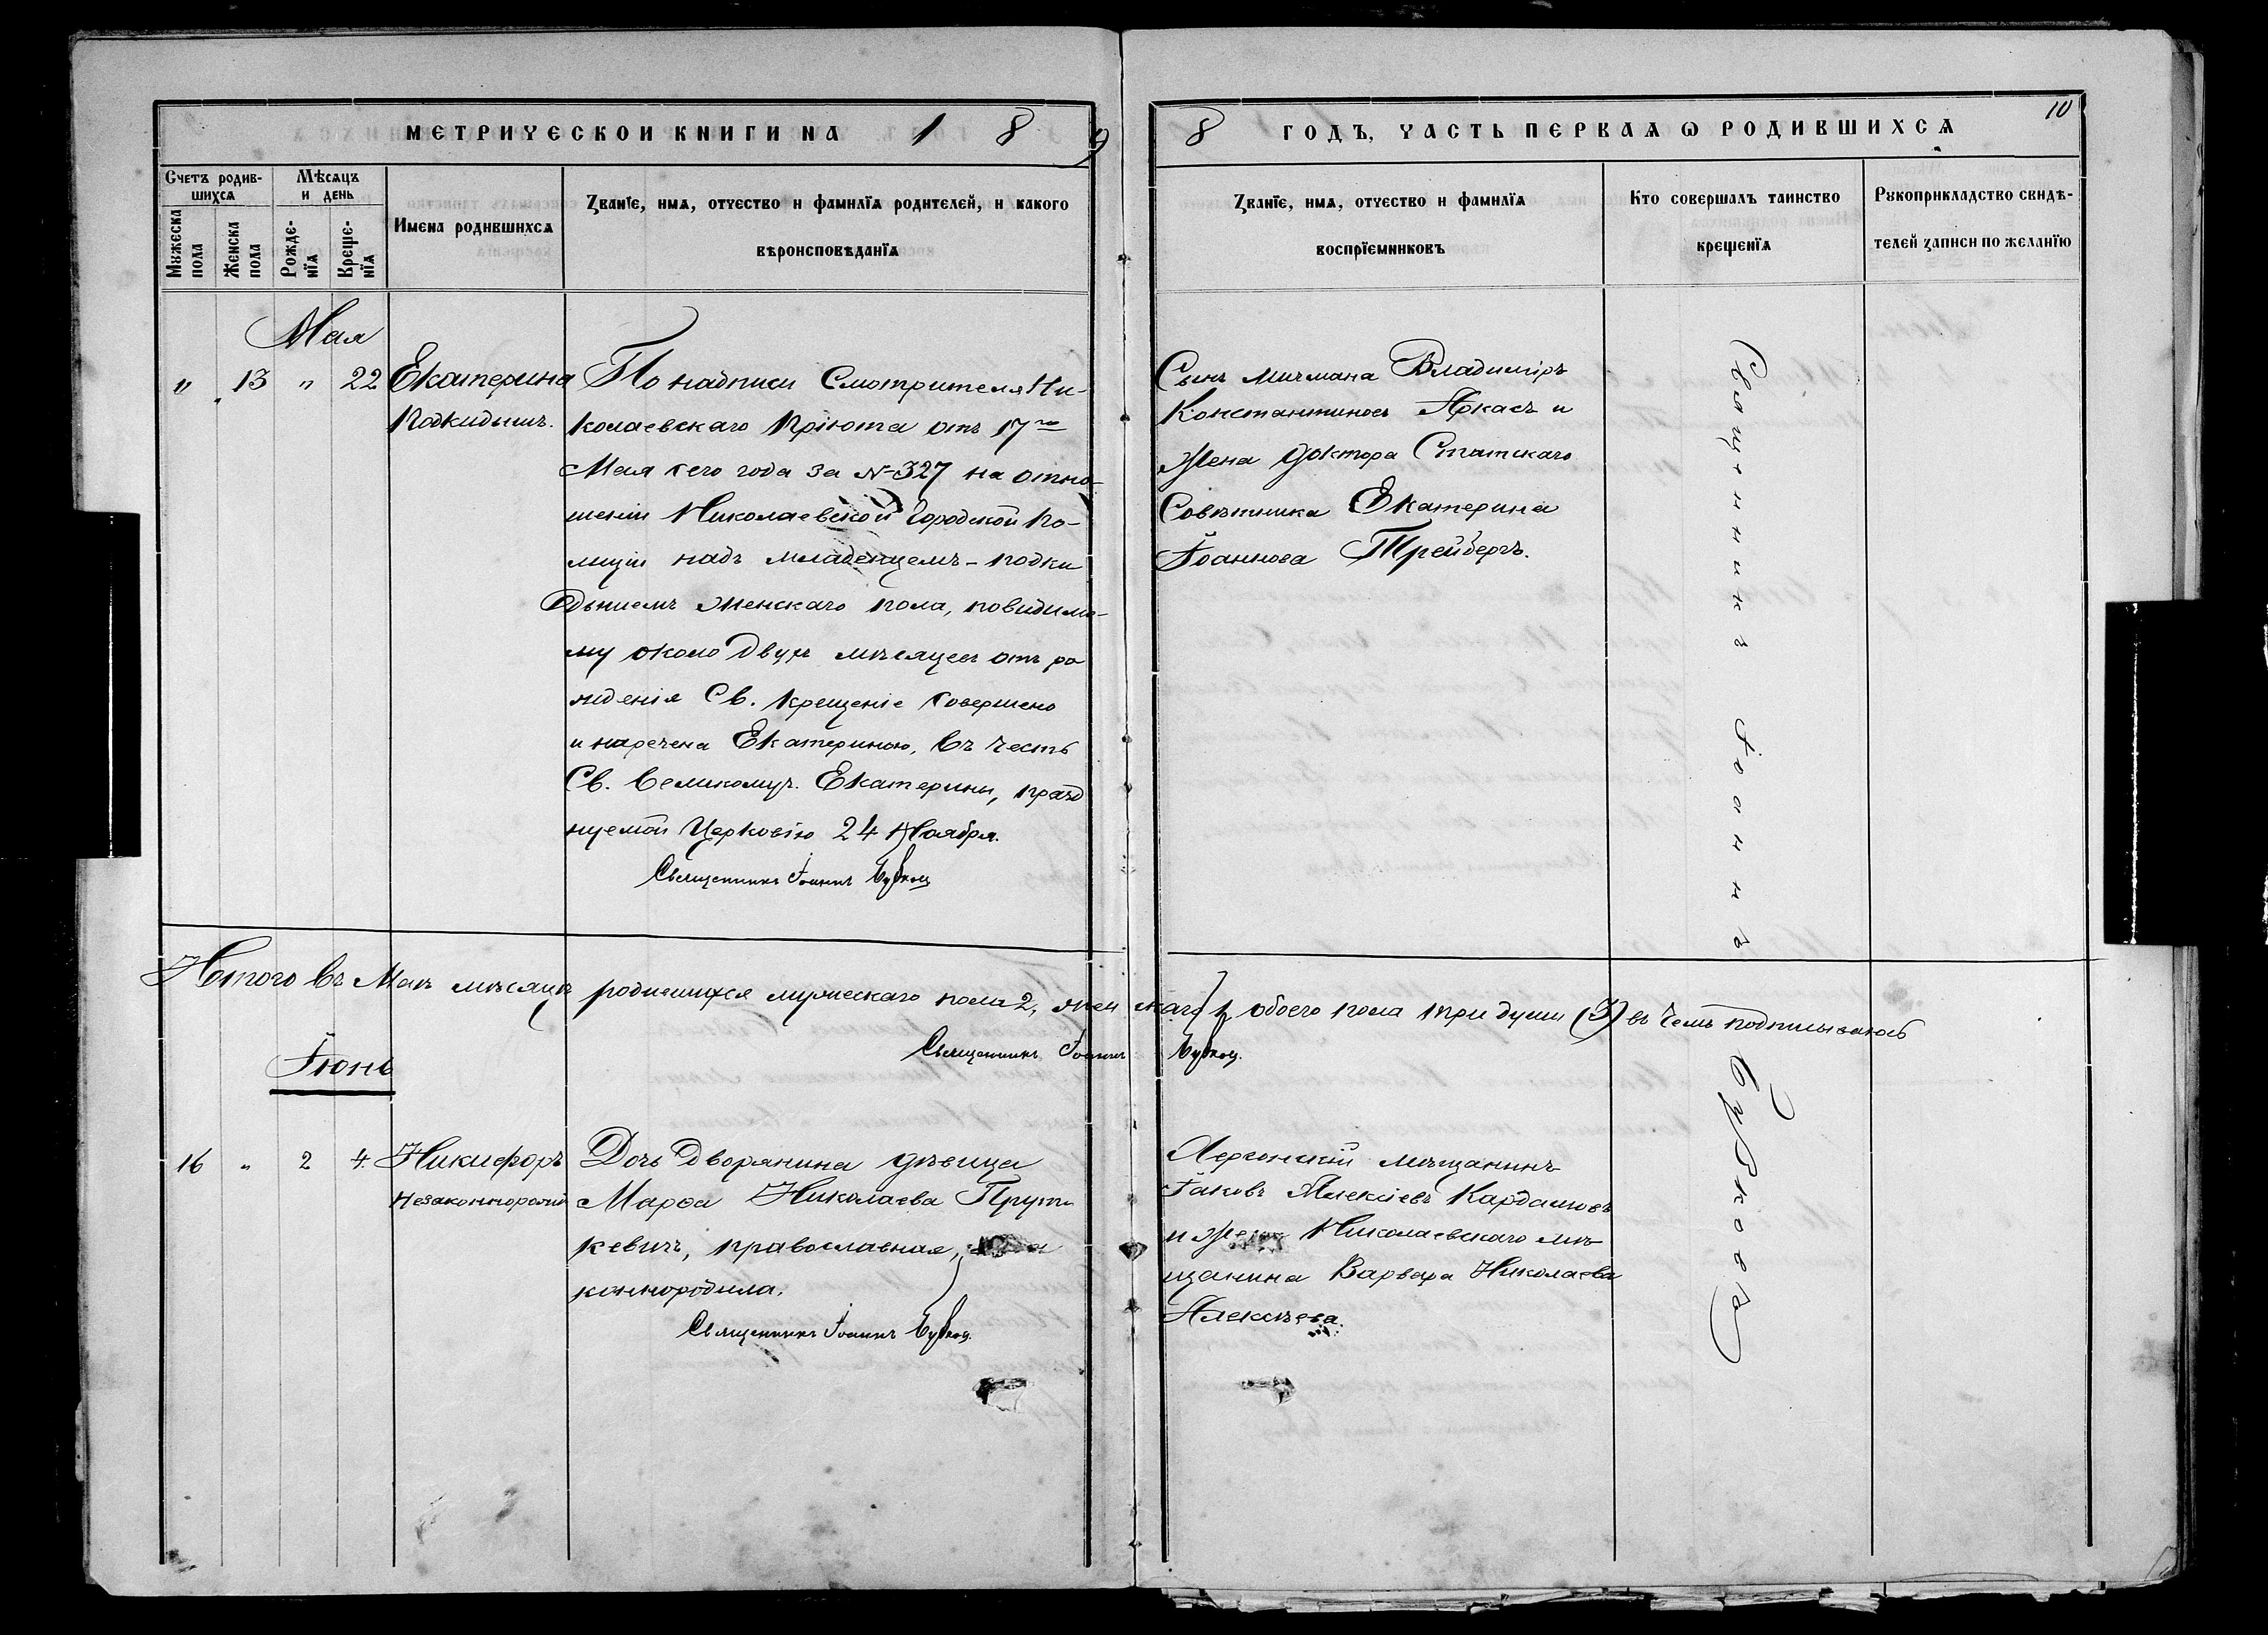 МЕТРИЧЕСКОЙ КНИГИ НА 1 8 9
Счетъ родив-
шихся
Мѣсяцъ
и день
Мужеска
пола
Женска
пола
Рожде-
нія
Креще-
нія
Имена родившихся
Званіе, имя, отчество и фамилія родителей, и какого
вѣроисповѣданія
Мая
" 13 " 22 Екатерина
Подкидышъ.
По надписи Смотрителя Ни-
колаевскаго Пріюта отъ 17го
Мая сего года за № 327 на отно-
шеніи Николаевской Городской По-
лиціи надъ младенцемъ - подки
дышемъ женскаго пола, повидимо-
му около двухъ мѣсяцевъ отъ ро
жденія Св. Крещеніе совершено
и наречена Екатериною, въ честь
Св. Великомуч. Екатерины, празд
нуемой Церковію 24 Ноября.
Священникъ Іоаннъ
Итого въ Маѣ мѣсяцѣ родившихся мужескаго пола 2, жен
Священникъ Іоаннъ
Іюнь
16 " 2 4. Никифоръ
Незаконнорожд
Дочь Дворянина дѣвица
Марѳа Николаева Прут
кевичъ, православная,
коннородила.
Священникъ Іоаннъ
8 ГОДЪ, ЧАСТЬ ПЕРВАЯ Ѡ РОДИВШИХСЯ 10
Званіе, имя, отчество и фамилія
воспріемниковъ
Кто совершалъ таинство
крещенія
Рукоприкладство свидѣ-
телей записи по желанію
Сынъ мичмана Владиміръ
Константиновъ Аркасъ и
жена Доктора Статскаго
Совѣтника Екатерина
Іоаннова Трейбергъ.
скаго 1, обоего пола три души (3) въ чемъ подписываюсь
Херсонскій мѣщанинъ
Іаковъ Алексіевъ Кардашовъ
и жена Николаевскаго мѣ
щанина Варвара Николаева
Алексѣева.
Священникъ Іоаннъ